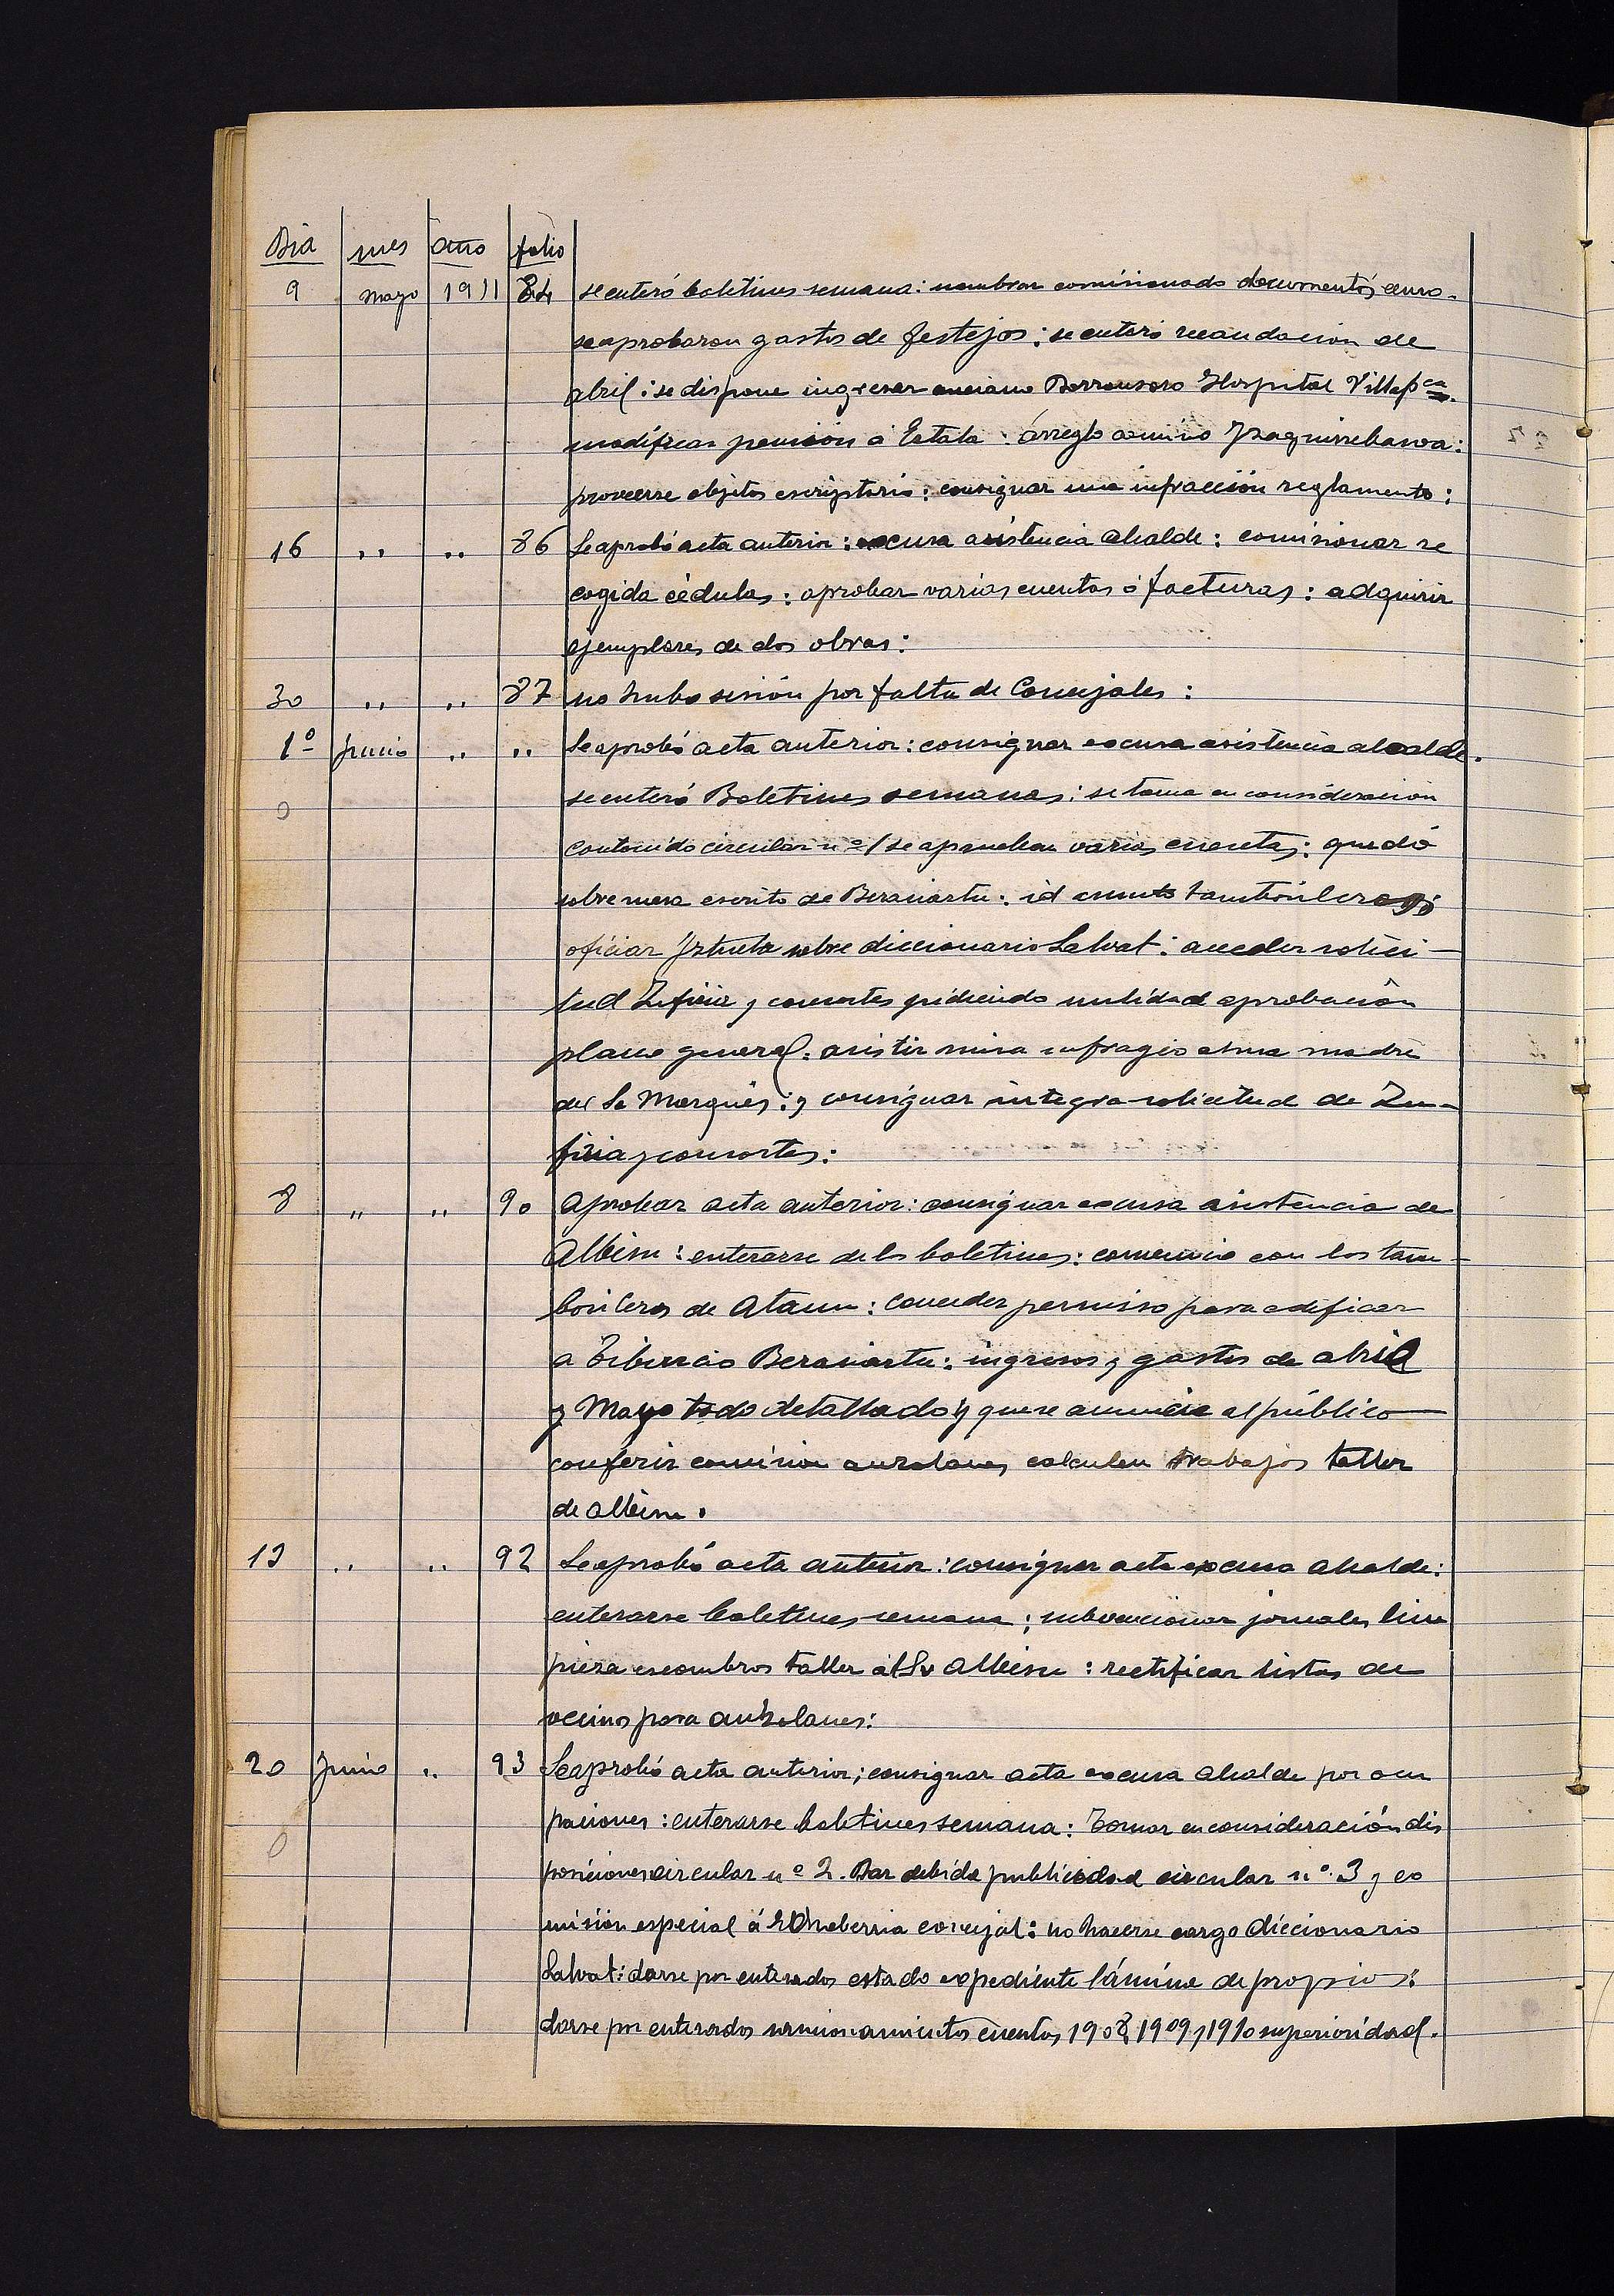 Dia mes año folio
9 mayo 1911 84 se enteró boletines semana: nombrar comisionado documentos
se aprobaron gastos de festejos: se enteró recaudacion de
abril: se dispone ingresar anciano Barrensoro Hospital Villafca.
modificar pension á Estala: arreglo camino
proveerse objetos escriptorio: consignar una infracción reglamento:
16 " " 86 Se aprobó acta anterior: excusa asistencia alcalde: comisionar re
cogida cédulas: aprobar varias cuentas ó facturas: adquirir
ejemplares de dos obras:
30 " " 87 no hubo sesión por falta de Concejales:
1º junio " " Se aprobó acta anterior: consignar excusa asistencia alcalde.
se enteró Boletines semanas: se toma en consideracion
contenido circular nº 1 se aprueban varias cuentas: quedó
sobre mesa escrito de Beraiartu: id cuenta tamborilero
oficiar Iztueta sobre diccionario Salvat: acceder solici-
tud Zufiria y consortes pidiendo nulidad aprobación
plano general: asistir misa sufragio alma madre
del Sr Marqués: y consignar integra solicitud de Zu-
firia y consortes:
8 " " 90 Aprobar acta anterior: consignar excusa asistencia de
Albisu: enterarse de ls boletines: convenio con los tam-
borileros de Ataun: conceder permiso para edificar
a Tiburcio Beraiartu: ingresos y gastos de abril
y Mayo todo detallado y que se anuncie al público
conferir comision auzolanes calculen trabajos taller
de Albisu.
13 " " 92 Se aprobó acta anterior: consignar acta excusa alcalde:
enterarse boletines semana: subvencionar jornales lim
pieza escombros taller al Sr Albisu: rectificar listas de
vecinos para auzolanes:
20 Junio " 93 Se aprobó acta anterior; consignar acta excusa alcalde por ocu
paciones: enterarse boletines semana: Tomar en consideración dis
posiciones circular nº 2. Dar debida publicidad circular nº 3 y co
misión especial á Echeberria concejal: no hacerse cargo diccionario
Salvat: darse por enterados estado expediente lámina de propios:
darse por enterados cuentas 1908, 1909 y 1910 superioridad.